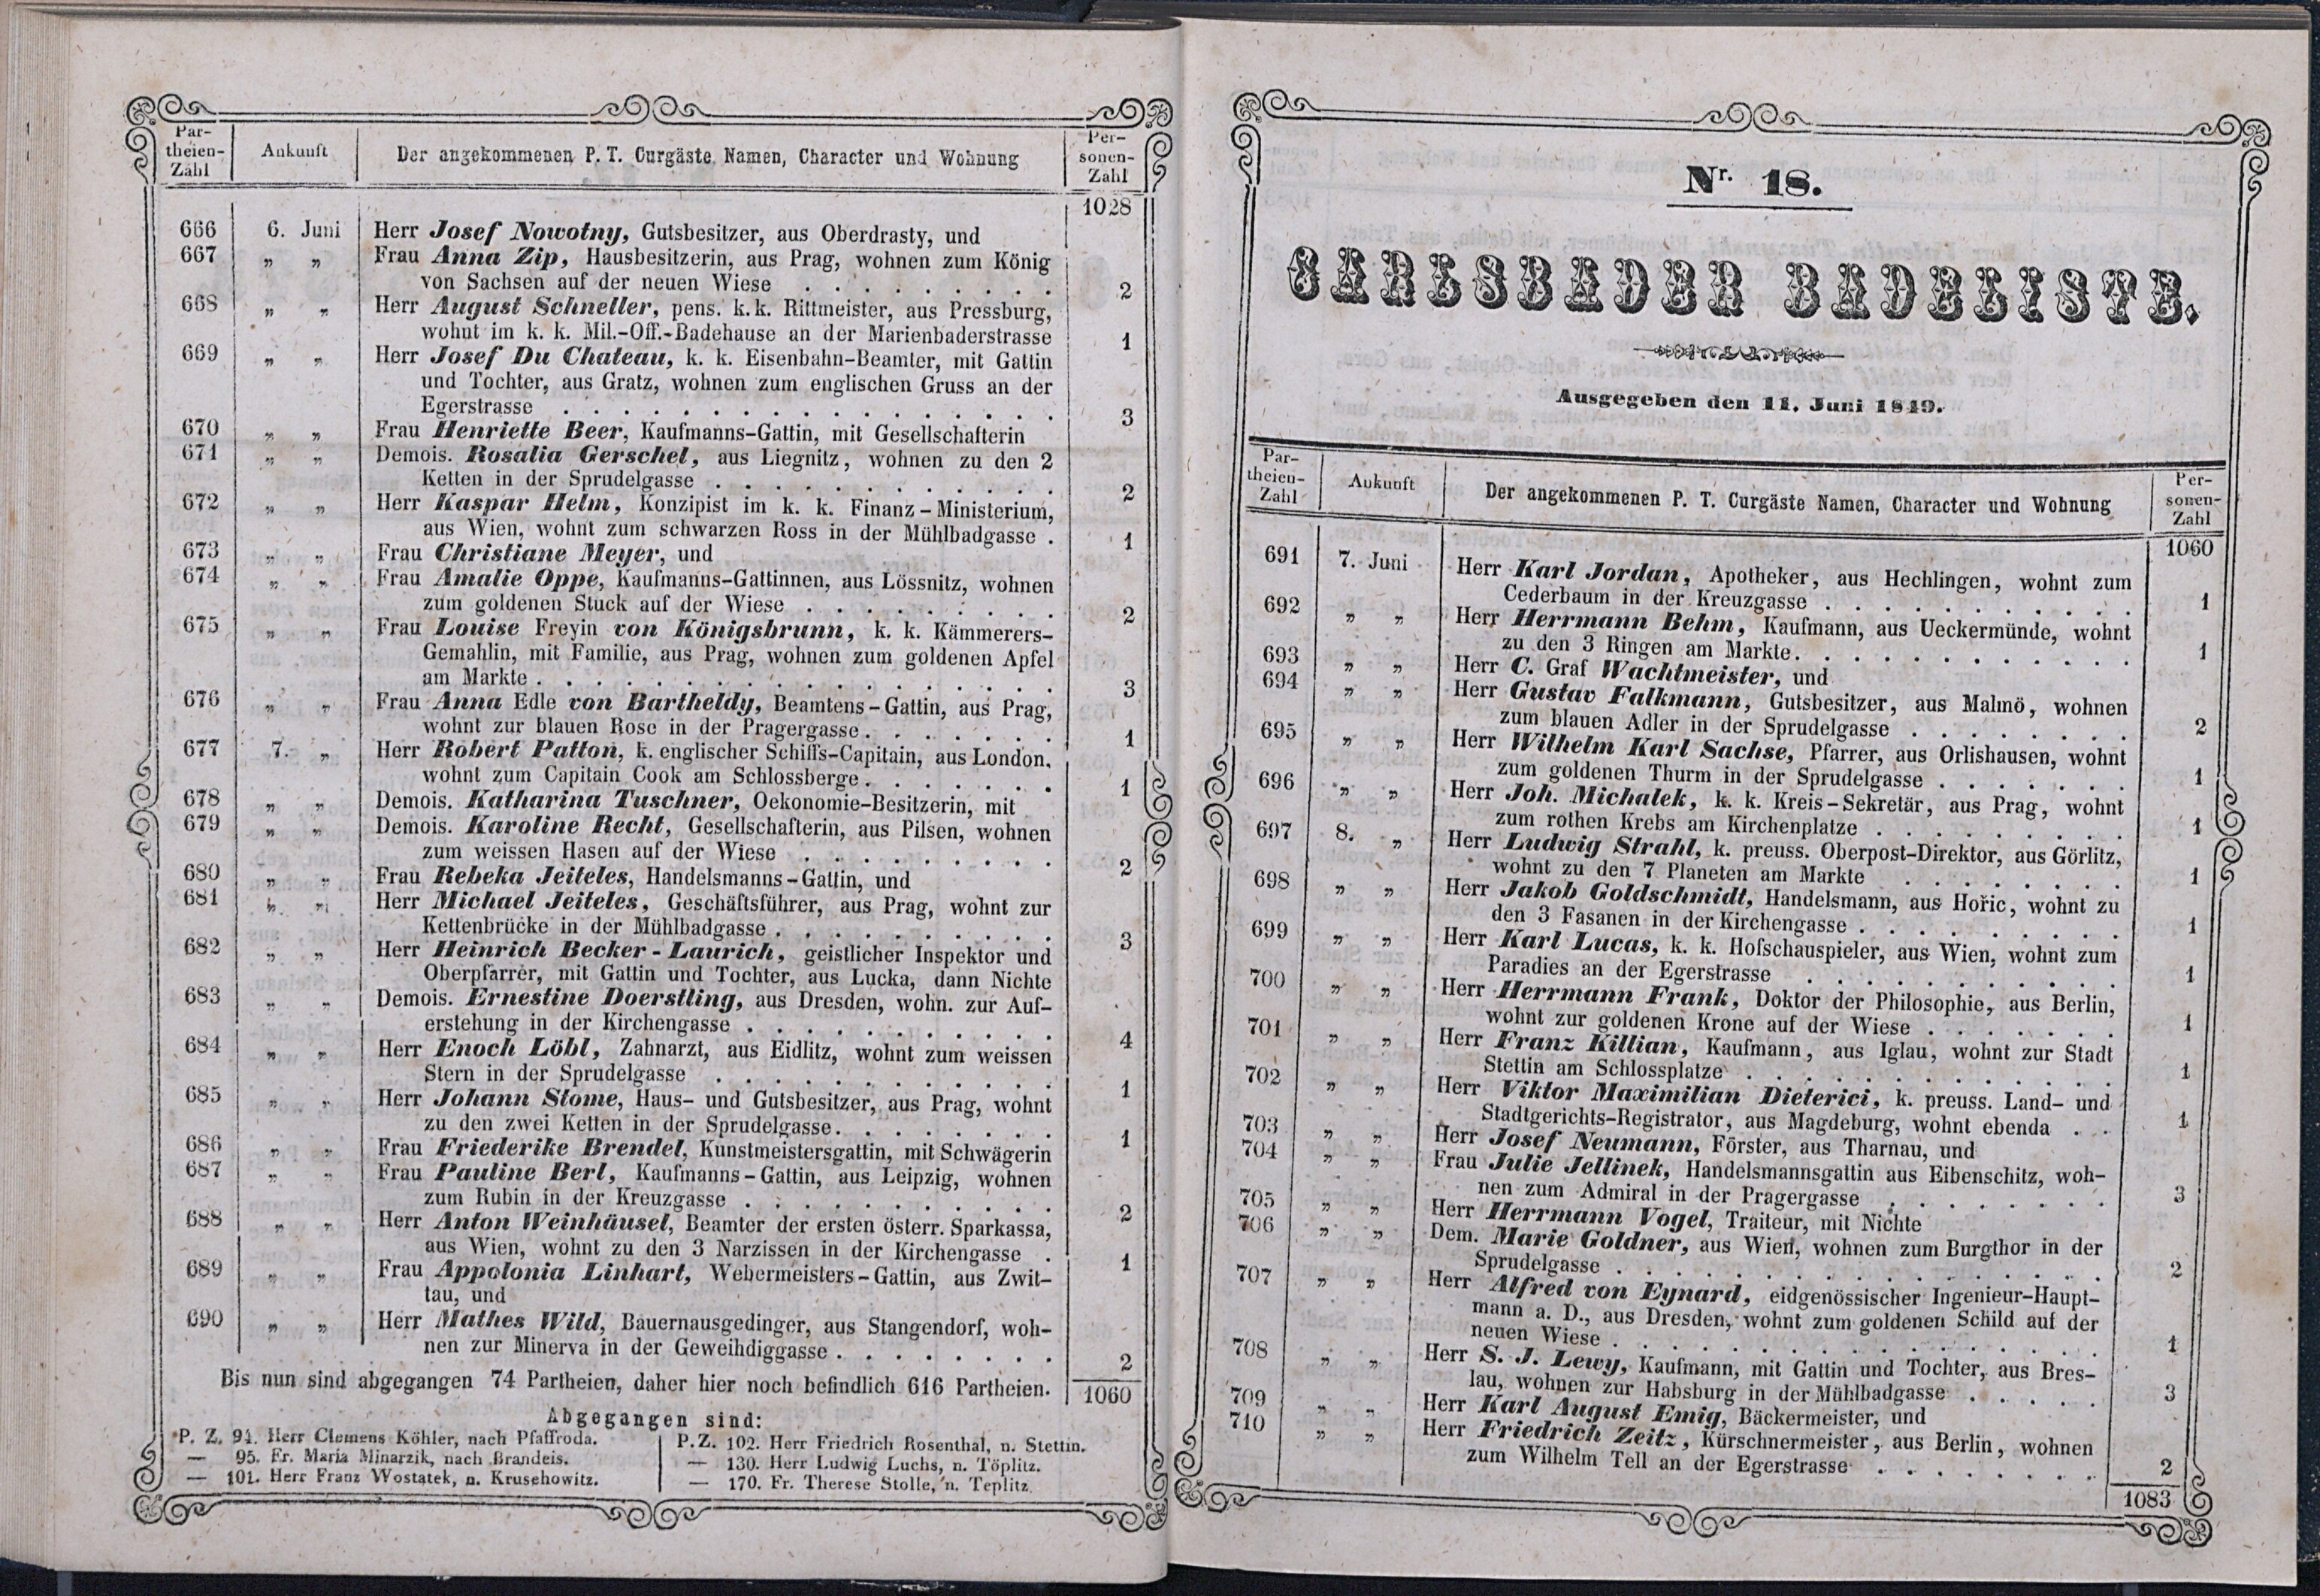 Par-
theien-
Zahl
Ankunft
Der angekommenen P. T. Curgäste Namen, Character und Wohnung
Per-
sonen-
Zahl
1028
666 6. Juni Herr Josef Nowotny, Gutsbesitzer, aus Oberdrasty, und
667 „ „ Frau Anna Zip, Hausbesitzerin, aus Prag, wohnen zum König
von Sachsen auf der neuen Wiese . . . . . . . . . 2
668 „ „ Herr August Schneller, pens. k. k. Rittmeister, aus Pressburg,
wohnt im k. k. Mil.-Off.-Badehause an der Marienbaderstrasse 1
669 „ „ Herr Josef Du Chateau, k. k. Eisenbahn-Beamter, mit Gattin
und Tochter, aus Gratz, wohnen zum englischen Gruss an der
Egerstrasse . . . . . . . . . . . . . . . . . 3
670 „ „ Frau Henriette Beer, Kaufmanns-Gattin, mit Gesellschafterin
671 „ „ Demois. Rosalia Gerschel, aus Liegnitz, wohnen zu den 2
Ketten in der Sprudelgasse . . . . . . . . . . . . 2
672 „ „ Herr Kaspar Helm, Konzipist im k. k. Finanz-Ministerium,
aus Wien, wohnt zum schwarzen Ross in der Mühlbadgasse . 1
673 „ „ Frau Christiane Meyer, und
674 „ „ Frau Amalie Oppe, Kaufmanns-Gattinnen, aus Lössnitz, wohnen
zum goldenen Stuck auf der Wiese . . . . . . . . . 2
675 „ „ Frau Louise Freyin von Königsbrunn, k. k. Kämmerers-
Gemahlin, mit Familie, aus Prag, wohnen zum goldenen Apfel
am Markte . . . . . . . . . . . . . . . . . . 3
676 „ „ Frau Anna Edle von Bartheldy, Beamtens-Gattin, aus Prag,
wohnt zur blauen Rose in der Pragergasse . . . . . . . 1
677 7. „ Herr Robert Patton, k. englischer Schiffs-Capitain, aus London.
wohnt zum Capitain Cook am Schlossberge . . . . . . . 1
678 „ „ Demois. Katharina Tuschner, Oekonomie-Besitzerin, mit
679 „ „ Demois. Karoline Recht, Gesellschafterin, aus Pilsen, wohnen
zum weissen Hasen auf der Wiese . . . . . . . . . 2
680 „ „ Frau Rebeka Jeiteles, Handelsmanns-Gattin, und
681 „ „ Herr Michael Jeiteles, Geschäftsführer, aus Prag, wohnt zur
Kettenbrücke in der Mühlbadgasse . . . . . . . . . . 3
682 „ „ Herr Heinrich Becker-Laurich, geistlicher Inspektor und
Oberpfarrer, mit Gattin und Tochter, aus Lucka, dann Nichte
683 „ „ Demois. Ernestine Doerstling, aus Dresden, wohn. zur Auf-
erstehung in der Kirchengasse . . . . . . . . . . . 4
684 „ „ Herr Enoch Löbl, Zahnarzt, aus Eidlitz, wohnt zum weissen
Stern in der Sprudelgasse . . . . . . . . . . . . 1
685 „ „ Herr Johann Stome, Haus- und Gutsbesitzer, aus Prag, wohnt
zu den zwei Ketten in der Sprudelgasse . . . . . . . . 1
686 „ „ Frau Friederike Brendel, Kunstmeistersgattin, mit Schwägerin
687 „ „ Frau Pauline Berl, Kaufmanns-Gattin, aus Leipzig, wohnen
zum Rubin in der Kreuzgasse . . . . . . . . . . . 2
688 „ „ Herr Anton Weinhäusel, Beamter der ersten österr. Sparkassa,
aus Wien, wohnt zu den 3 Narzissen in der Kirchengasse . 1
689 „ „ Frau Appolonia Linhart, Webermeisters-Gattin, aus Zwit-
tau, und
690 „ „ Herr Mathes Wild, Bauernausgedinger, aus Stangendorf, woh-
nen zur Minerva in der Geweihdiggasse . . . . . . . . 2
Bis nun sind abgegangen 74 Partheien, daher hier noch befindlich 616 Partheien. 1060
Abgegangen sind:
P. Z. 94. Herr Clemens Köhler, nach Pfaffroda.
— 95. Fr. Maria Minarzik, nach Brandeis.
— 101. Herr Franz Wostatek, n. Krusehowitz.
P. Z. 102. Herr Friedrich Rosenthal, n. Stettin.
— 130. Herr Ludwig Luchs, n. Töplitz.
— 170. Fr. Therese Stolle, n. Teplitz.
Nr. 18.
CARLSBADER BADELISTE.
Ausgegeben den 11. Juni 1849.
Par-
theien-
Zahl
Ankunft
Der angekommenen P. T. Curgäste Namen, Character und Wohnung
Per-
sonen-
Zahl
1060
691 7. Juni Herr Karl Jordan, Apotheker, aus Hechlingen, wohnt zum
Cederbaum in der Kreuzgasse . . . . . . . . . . . 1
692 „ „ Herr Herrmann Behm, Kaufmann, aus Ueckermünde, wohnt
zu den 3 Ringen am Markte . . . . . . . . . . . . 1
693 „ „ Herr C. Graf Wachtmeister, und
694 „ „ Herr Gustav Falkmann, Gutsbesitzer, aus Malmö, wohnen
zum blauen Adler in der Sprudelgasse . . . . . . . . 2
695 „ „ Herr Wilhelm Karl Sachse, Pfarrer, aus Orlishausen, wohnt
zum goldenen Thurm in der Sprudelgasse . . . . . . . 1
696 „ „ Herr Joh. Michalek, k. k. Kreis-Sekretär, aus Prag, wohnt
zum rothen Krebs am Kirchenplatze . . . . . . . . . 1
697 8. „ Herr Ludwig Strahl, k. preuss. Oberpost-Direktor, aus Görlitz,
wohnt zu den 7 Planeten am Markte . . . . . . . . 1
698 „ „ Herr Jakob Goldschmidt, Handelsmann, aus Hořic, wohnt zu
den 3 Fasanen in der Kirchengasse . . . . . . . . . 1
699 „ „ Herr Karl Lucas, k. k. Hofschauspieler, aus Wien, wohnt zum
Paradies an der Egerstrasse . . . . . . . . . . . 1
700 „ „ Herr Herrmann Frank, Doktor der Philosophie, aus Berlin,
wohnt zur goldenen Krone auf der Wiese . . . . . . . 1
701 „ „ Herr Franz Killian, Kaufmann, aus Iglau, wohnt zur Stadt
Stettin am Schlossplatze . . . . . . . . . . . . . 1
702 „ „ Herr Viktor Maximilian Dieterici, k. preuss. Land- und
Stadtgerichts-Registrator, aus Magdeburg, wohnt ebenda . . 1
703 „ „ Herr Josef Neumann, Förster, aus Tharnau, und
704 „ „ Frau Julie Jellinek, Handelsmannsgattin aus Eibenschitz, woh-
nen zum Admiral in der Pragergasse . . . . . . . . 3
705 „ „ Herr Herrmann Vogel, Traiteur, mit Nichte
706 „ „ Dem. Marie Goldner, aus Wien, wohnen zum Burgthor in der
Sprudelgasse . . . . . . . . . . . . . . . . . 2
707 „ „ Herr Alfred von Eynard, eidgenössischer Ingenieur-Haupt-
mann a. D., aus Dresden, wohnt zum goldenen Schild auf der
neuen Wiese . . . . . . . . . . . . . . . . . 1
708 „ „ Herr S. J. Lewy, Kaufmann, mit Gattin und Tochter, aus Bres-
lau, wohnen zur Habsburg in der Mühlbadgasse . . . . . 3
709 „ „ Herr Karl August Emig, Bäckermeister, und
710 „ „ Herr Friedrich Zeitz, Kürschnermeister, aus Berlin, wohnen
zum Wilhelm Tell an der Egerstrasse . . . . . . . . 2
1083